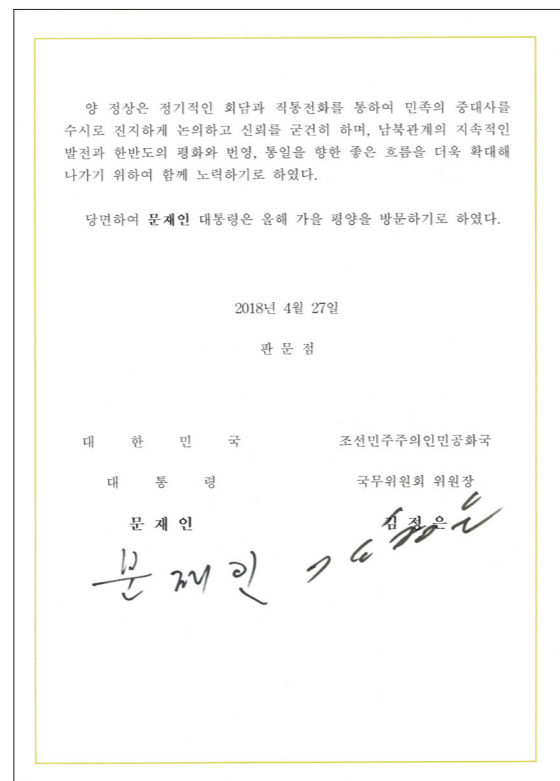 양 정상은 정기적인 회담과 직통전화를 통하여 민족의 중대사를
수시로 진지하게 논의하고 신뢰를 굳건히 하며, 남북관계의 지속적인
발전과 한반도의 평화와 번영, 통일을 향한 좋은 흐름을 더욱 확대해
나가기 위하여 함께 노력하기로 하였다.
당면하여 문재인 대통령은 올해 가을 평양을 방문하기로 하였다.
2018년 4월 27일
판 문 점
대 한 민 국
대 통 령
문 재 인
문재인
조선민주주의인민공화국
국무위원회 위원장
김 정 은
김정은